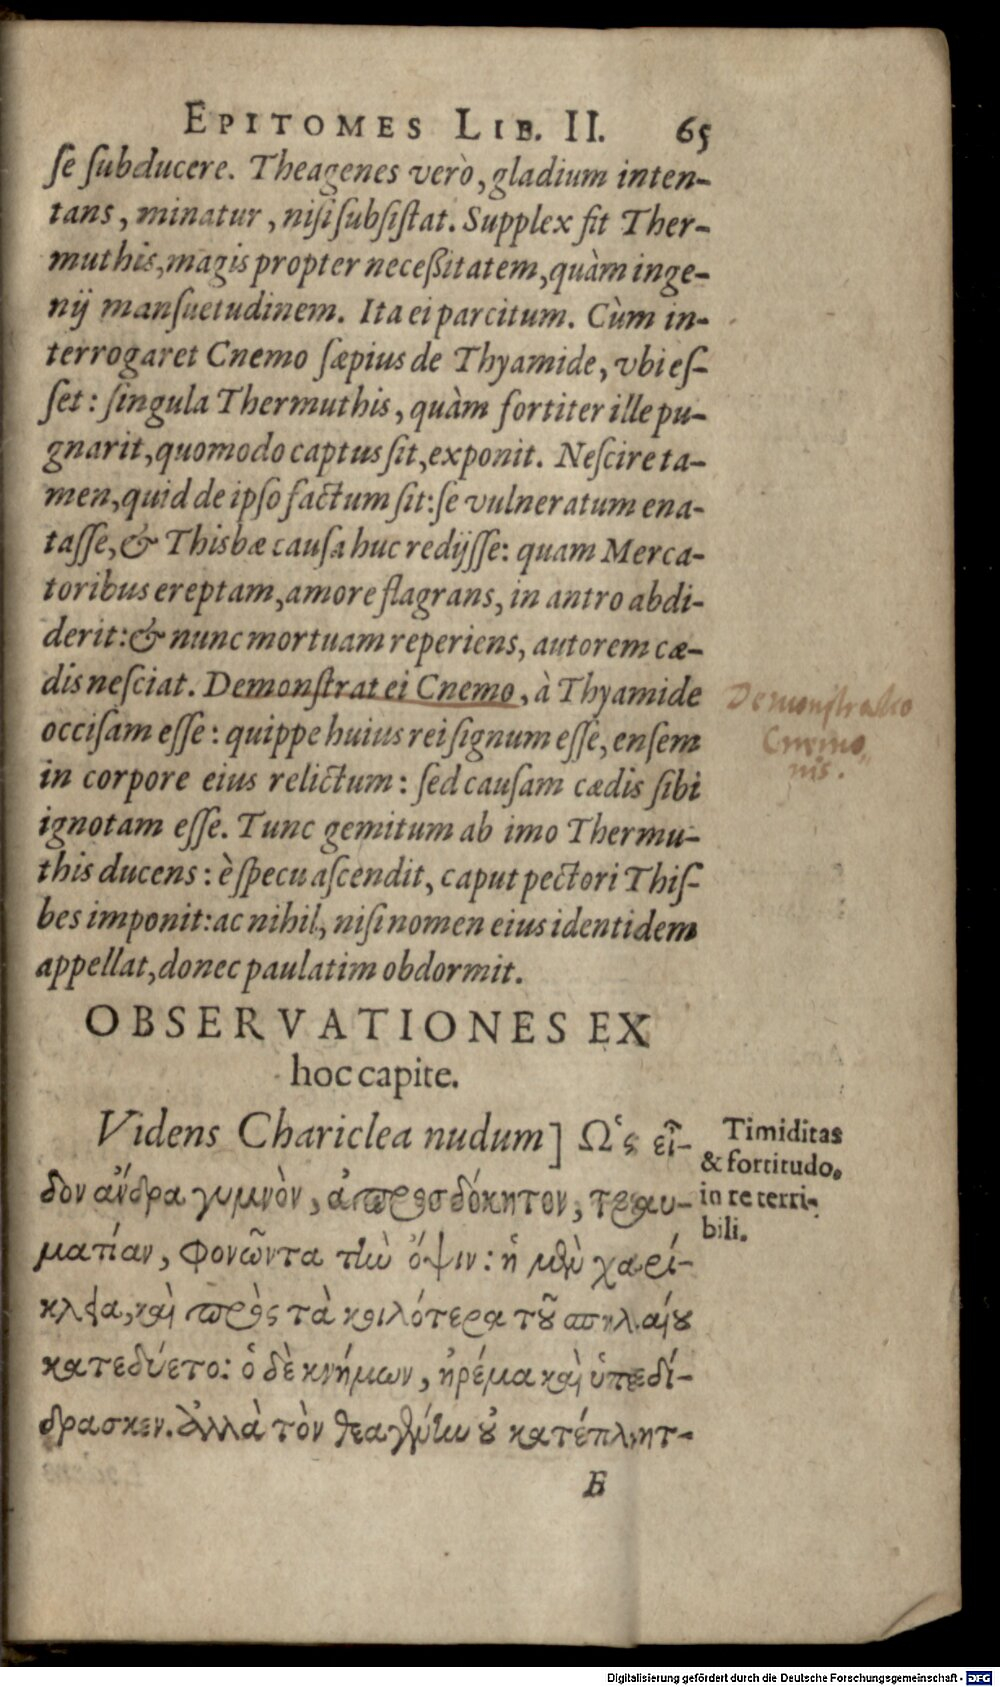 EPITOMES LIB. II. 65
ſe ſubducere. Theagenes verò, gladium inten-
tans, minatur, niſi ſubſiſtat. Supplex fit Ther-
muthis, magis propter neceßitatem, quàm inge-
nij manſuetudinem. Ita ei parcitum. Cùm in-
terrogaret Cnemo ſæpius de Thyamide, vbi eſ-
ſet: ſingula Thermuthis, quàm fortiter ille pu-
gnarit, quomodo captus ſit, exponit. Neſcire ta-
men, quid de ipſo factum ſit: ſe vulneratum ena-
taſſe, & Thisbæ cauſa huc redijſſe: quam Merca-
toribus ereptam, amore flagrans, in antro abdi-
derit: & nunc mortuam reperiens, autorem cæ-
dis neſciat. Demonſtrat ei Cnemo, à Thyamide
occiſam eſſe: quippe huius rei ſignum eſſe, enſem
in corpore eius relictum: ſed cauſam cædis ſibi
ignotam eſſe. Tunc gemitum ab imo Thermu-
this ducens: è ſpecu aſcendit, caput pectori Thiſ-
bes imponit: ac nihil, niſi nomen eius identidem
appellat, donec paulatim obdormit.
Demonſtratio
Cnemo„
nis.
OBSERVATIONES EX
hoc capite.
Videns Chariclea nudum] Ὡς εἶ-
δον ἄνδρα γυμνὸν, ἀπροσδόκητον, τραυ-
ματίαν, φονῶντα τὴν ὄψιν: ἡ μὲν χαρί-
κλεια, καὶ πρὸς τὰ κοιλότερα τοῦ σπηλαίου
κατεδύετο: ὁ δὲ κνήμων, ἠρέμα καὶ ὑπεδί-
δρασκεν. ἀλλὰ τὸν θεαγένην οὐ κατέπληττ-
Timiditas
& fortitudo,
in re terri-
bili.
E
Digitalisierung gefördert durch die Deutsche Forschungsgemeinschaft - DFG